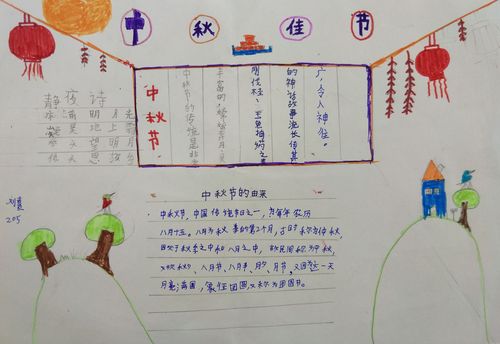 中秋佳节
静夜诗
床前明月光
疑是地上霜
举头望明月
低头思故乡
中秋节
中秋节的传说是非
丰富的，嫦娥奔月，
刚伐桂、玉兔捣药之
的神话故事流传甚
广，令人神往。
中秋节的由来
中秋节，中国传统节日之一，为每年农历
八月十五。八月为秋季的第2个月，古时称为仲秋，
因处于秋季之中和八月之中，故民间称为中秋，
又称秋夕、八月节、八月半、月夕、月节，又因为这一天
月亮满圆，象征团圆，又称为团圆节。
205